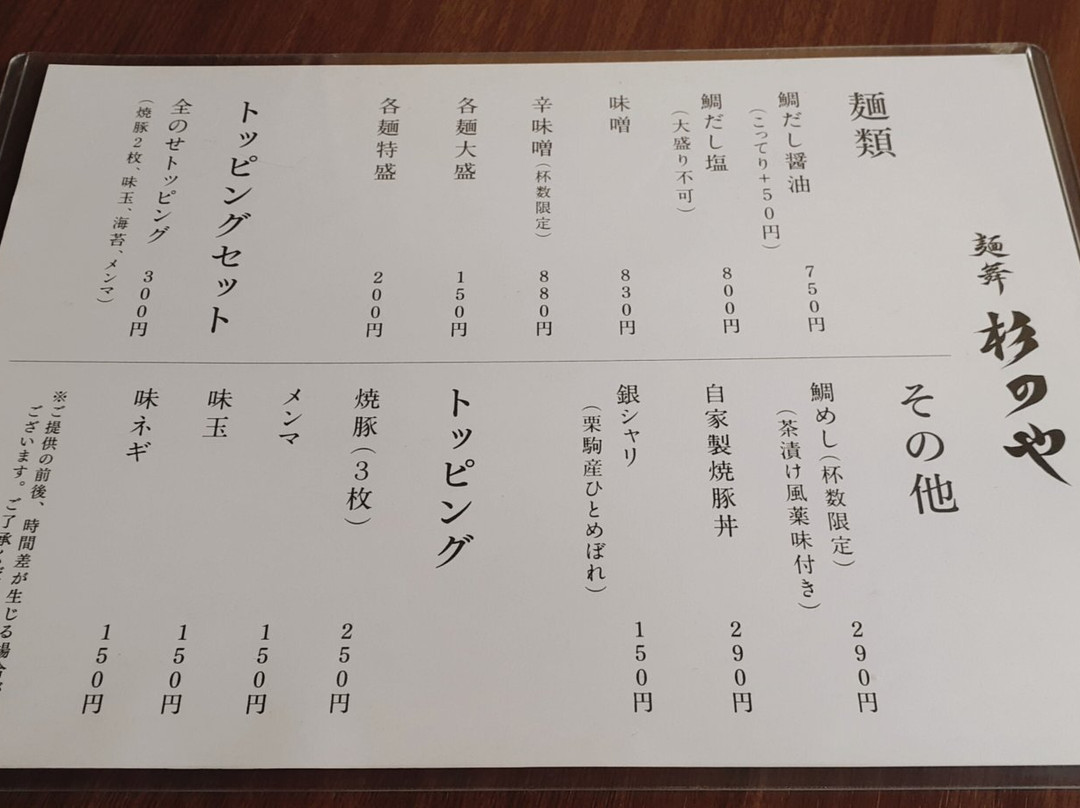 麺舞 杉のや
麺類
鯛だし醤油 750円
(こってり+50円)
鯛だし塩 800円
(大盛り不可)
味噌 830円
辛味噌(杯数限定) 880円
各麺大盛 150円
各麺特盛 200円
トッピングセット
全のせトッピング 300円
(焼豚2枚、味玉、海苔、メンマ)
その他
鯛めし(杯数限定) 290円
(茶漬け風薬味付き)
自家製焼豚丼 290円
銀シャリ 150円
(栗駒産ひとめぼれ)
トッピング
焼豚(3枚) 250円
メンマ 150円
味玉 150円
味ネギ 150円
※ご提供の前後、時間差が生じる場合
ございます。ご了承